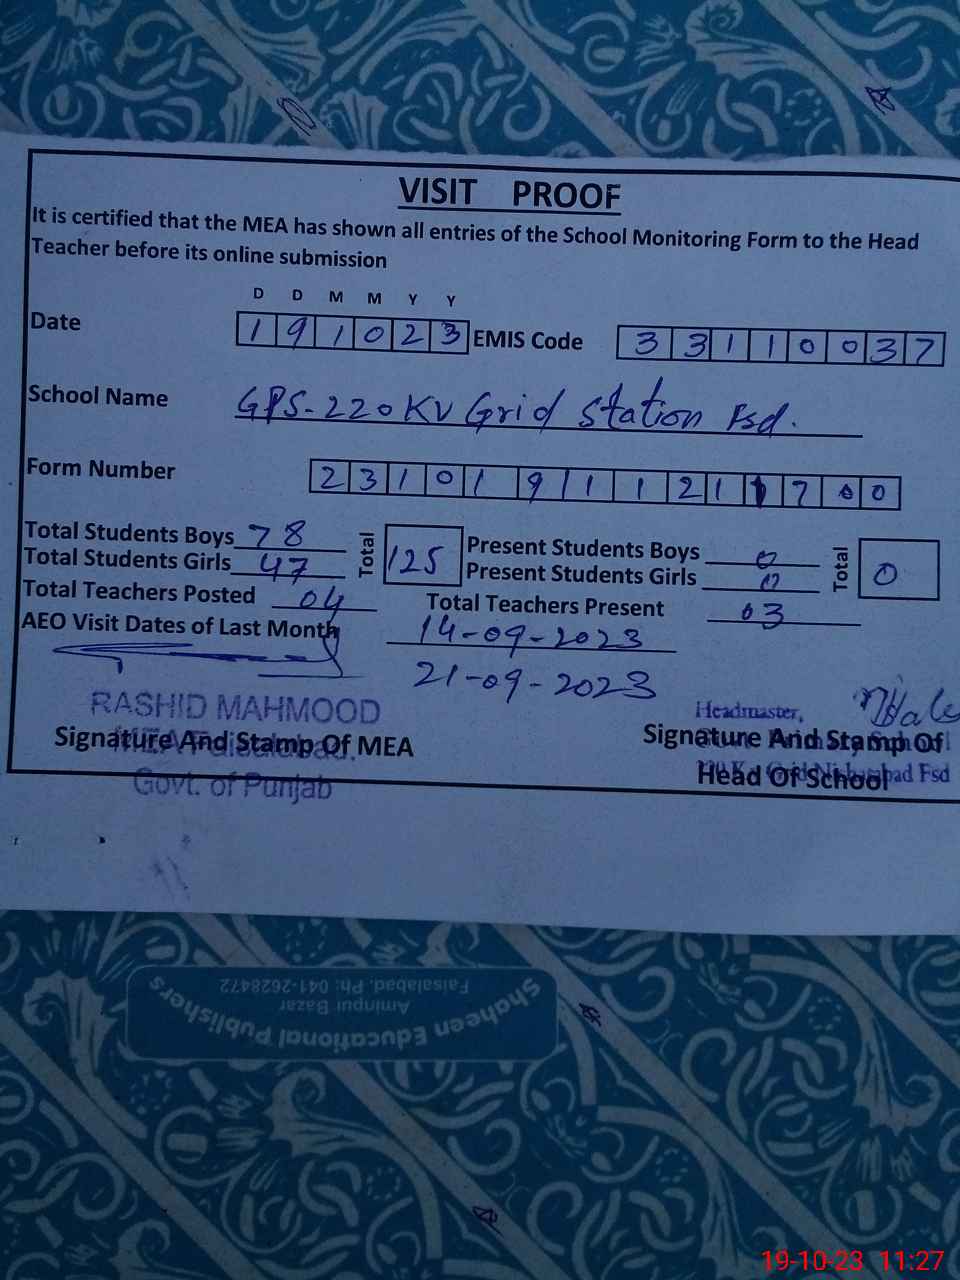 VISIT PROOF
It is certified that the MEA has shown all entries of the School Monitoring Form to the Head
Teacher before its online submission
D D M M Y Y
Date 1 9 1 0 2 3 EMIS Code 3 3 1 1 0 0 3 7
School Name GPS-220KV Grid Station Fsd.
Form Number 2 3 1 0 1 9 1 1 2 1 1 7 0 0
Total Students Boys 78 Total 125 Present Students Boys 0 Total 0
Total Students Girls 47 Present Students Girls 0
Total Teachers Posted 04 Total Teachers Present 03
AEO Visit Dates of Last Month 14-09-2023
21-09-2023
RASHID MAHMOOD Headmaster,
Signature And Stamp Of MEA Signature And Stamp Of
MEA Faisalabad. Head Of School
Govt. of Punjab
Shaheen Educational Publishers
Aminpur Bazar
Faisalabad. Ph: 041-2628472
19-10-23 11:27